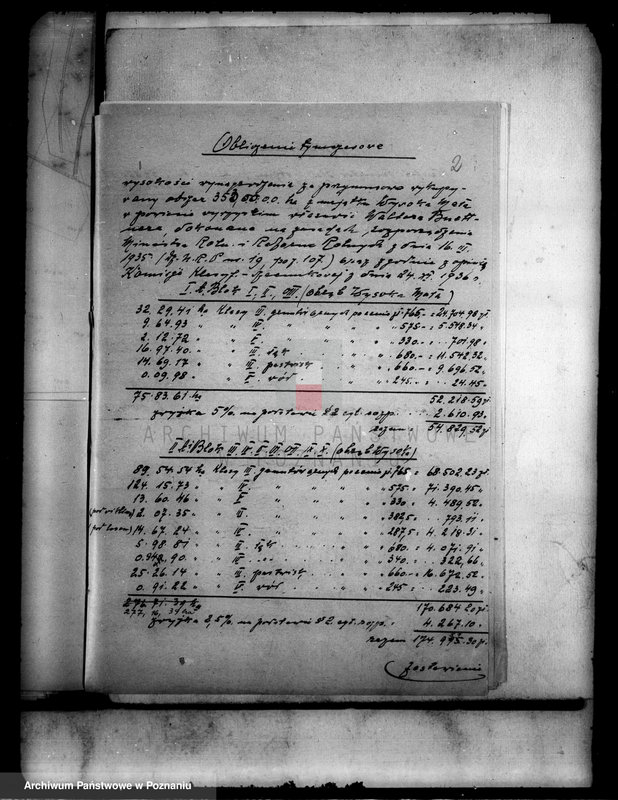 Obliczenie szacunkowe
2
wysokości wynagrodzenia za przymusowo wykupy-
wany obszar 353,00.00. ha z majątku Wysoka Mała
w powiecie wyrzyskim własność Waltera
dokonane na zasadach rozporządzenia
Ministra Roln. i Reform Rolnych z dnia 16. III.
1935 (Dz. U. R. P. nr. 19, poz. 107) oraz zgodnie z opinią
Komisji Klasyf.-Szacunkowej z dnia 24. XI. 1936 r.
I. Blok I, II, VIII, (obręb Wysoka Mała)
32. 29. 41 ha klasy III gruntów ornych po cenie zł. 765.- = 24.704.98 zł.
9. 64. 93 " " IV " " " " 575.- = 5.548.34 "
2. 12. 72 " " V " " " " 330.- = 701.98 "
16. 97. 40 " " III łąk " " 680.- = 11.542.32 "
14. 69. 17 " " III pastwisk " " 660.- = 9.696.52 "
0. 09. 98 " " V " " 245.- = 24.45 "
75. 83. 61 ha 52.218.59 zł
zwyżka 5% na podstawie § 2 cyt. rozp. 2.610.93 "
razem 54.829.52 zł
ARCHIWUM PAŃSTWOWE
W POZNANIU
II. Blok III IV V VI VII IX X (obręb Wysoka)
89. 54. 54 ha klasy III gruntów ornych po cenie zł. 765.- = 68.502.23 zł.
124. 15. 73 " " IV " " " " 575.- = 71.390.45 "
13. 60. 46 " " V " " " " 330.- = 4.489.52 "
2. 07. 35 " " III " " " " 382,5 793.11 "
(pod lasem) 14. 67. 24 " " IV " " " " 287,5 4.218.31 "
5. 98. 81 " " III łąk " " 680.- = 4.071.91 "
90. " " " " 340.- = 322,66 "
25. 26. 14 " " III pastwisk " " 660.- = 16.672.52 "
0. 91. 22 " " V " " 245.- = 223.49 "
170.684.20 zł
zwyżka 2,5% na podstawie § 2 cyt. rozp. 4.267.10 "
razem 174.30 zł.
Zestawienie
Archiwum Państwowe w Poznaniu